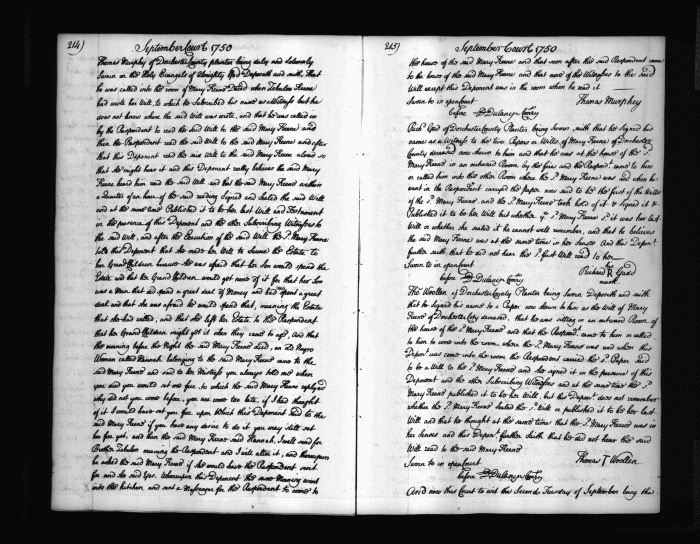 214)
September Court 1750
Thomas Murphy of Dorchester County planter being duly and Solemnly
Sworn on the Holy Evangels of Almighty God Deposeth and saith That
he was called into the room of Mary Keene Dated when Zebulon Keene
had wrote her Will, to which he Subscribed his name as a Witness but he
does not know where the said Will was wrote, and that he was called in
by the Respondent to read the said Will to the said Mary Keene and
then the Respondent read the said Will to the said Mary Keene and after
that this Deponent read the said Will to the said Mary Keene aloud so
that she might hear it and this Deponent really believes the said Mary
Keene heard him read the said Will and that the said Mary Keene within
a Quarter of an hour of the said reading Signed and Sealed the said Will
and at the same time Published it to be her last Will and Testament
in the presence of this Deponent and the other Subscribing Witnesses to
the said Will, and after the Execution of the said Will the sd. Mary Keene
told this Deponent that she made her Will to Secure the Estate to
her Grand Children because she was afraid that her Son would spend the
Estate and that her Grand Children would get none of it for that her Son
was a Man that had spent a great deal of Money and had spent a great
deal and that she was afraid he would spend that, meaning the Estate
that she had willed, and that she left her Estate to the Respondent
that her Grand Children might get it when they came to age, And that
the evening before the Night the said Mary Keene died, an old Negro
Woman called Hannah belonging to the said Mary Keene came to the
said Mary Keene and said to her Mistress you always told me when
you died you would set me free, to which the said Mary Keene replyed
why did not you come before, you are come too late, if I had thought
of it I would have set you free upon which this Deponent said to the
said Mary Keene if you have any desire to do it you may still set
her free yet, and then the said Mary Keene said Hannah, I will send for
Brother Zebulon meaning the Respondent and I will alter it, and thereupon
he asked the said Mary Keene if she would have the Respondent sent
for and she said Yes. Whereupon this Deponent the same Evening went
into the kitchen and sent a Messenger for the Respondent to come to
215)
September Court 1750
the house of the said Mary Keene and that soon after the said Respondent came
to the house of the said Mary Keene and that none of the Witnesses to the said
Will except this Deponent was in the room when he read it
Sworn to in open Court
Thomas Murphey
before D Dulaney Comry
Richd. Gad of Dorchester County Planter being Sworn saith that he Signed his
name as a Witness to the two Papers or Wills of Mary Keene of Dorchester
County deceased now shown to him and that he was at the house of the sd.
Mary Keene in an outward Room by the fire and the Respondt. came to him
or called him into the other Room where the sd. Mary Keene was and when he
went in the Respondent carryed the paper now said to be the first of the Wills
of the sd. Mary Keene, and the sd. Mary Keene took hold of it & Signed it &
Published it to be her Will but whether ye. sd. Mary Keene sd. it was her last
Will or whether she sealed it he cannot well remember, and that he believes
the said Mary Keene was at the same time in her Senses And this Depont.
further saith that he did not hear the sd. first Will read to her
Sworn to in open Court
his
Richard R Gadd
mark
before D Dulaney Comry
Thos. Woollen of Dorchester County Planter being Sworn Deposeth and saith
that he Signed his name to a Paper now shown to him as the Will of Mary
Keene of Dorchester Coty. deceased, that he was sitting in an outward Room of
the house of the sd. Mary Keene and that the Respondt. came to him or called
to him to come into the room where the sd. Mary Keene was and when this
Depont. was come into the room the Respondent carried the sd. Paper said
to be a Will to the sd. Mary Keene and she signed it in the presence of this
Deponent and the other Subscribing Witnesses and at the same time the sd.
Mary Keene published it to be her Will, but this Depont. does not remember
whether the sd. Mary Keene Sealed the sd. Will or published it to be her last
Will and that he thought at the same time that the sd. Mary Keene was in
her Senses and this Depont. further Saith that he did not hear this said
Will read to the said Mary Keene
Sworn to in open Court
Thomas T Woollen
before D Dulaney Comry
And now this Court to wit the Second Tuesday of September being the